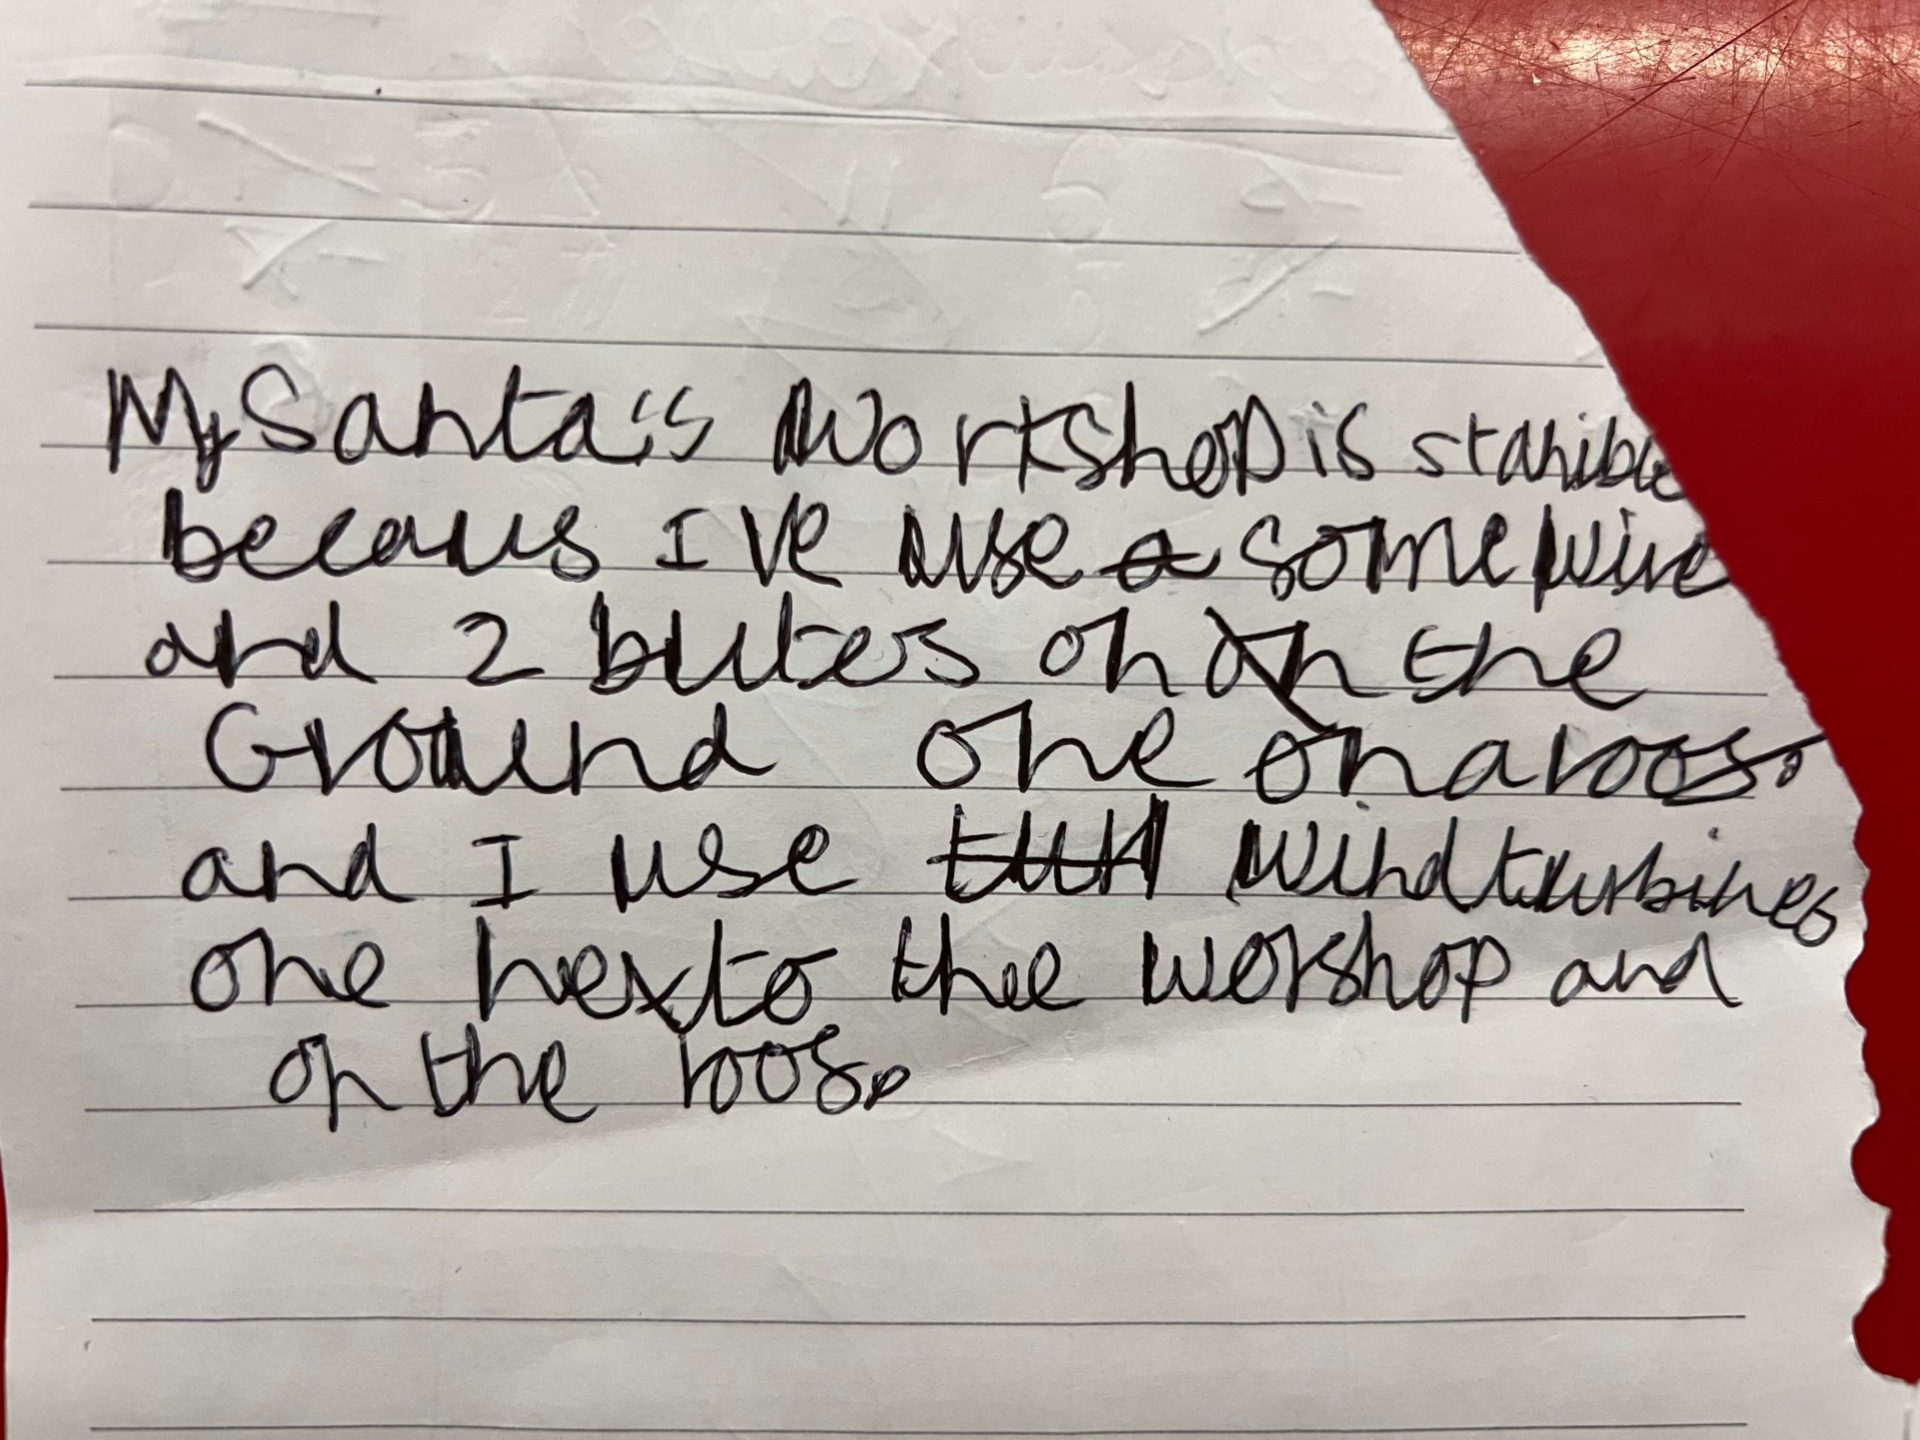 My Santa's Workshop is
becaus I've use some wire
and 2 on the
Ground one on a roof.
and I use Windturbines
one nexto the worshop and
on the roof.